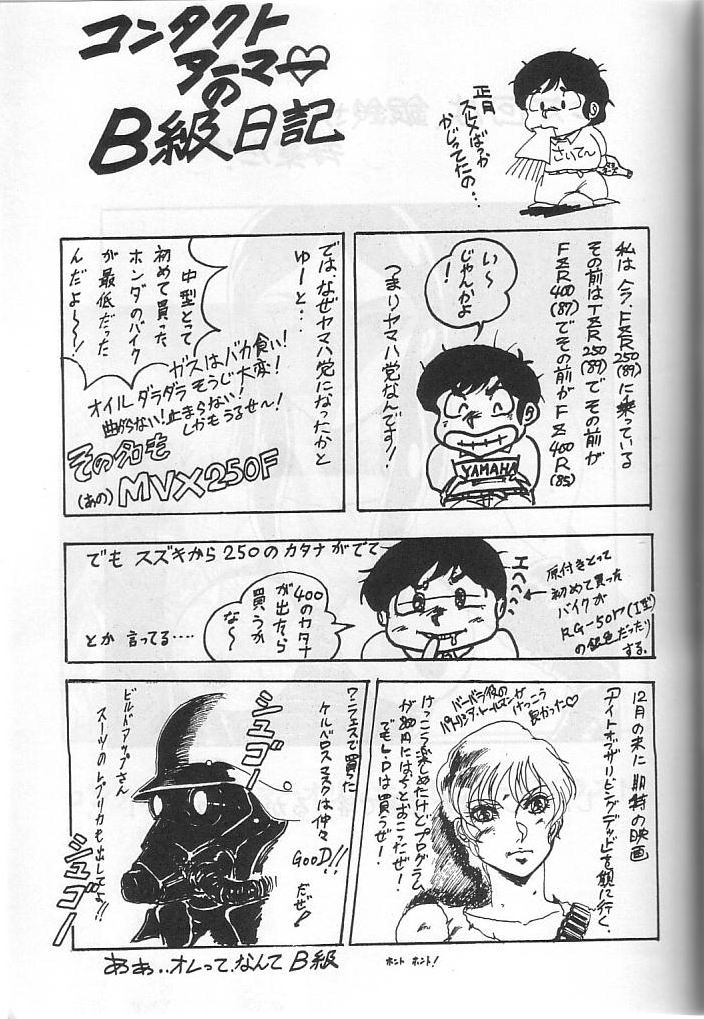 コンタクト
アーマー
の
B級日記
正月
スルメばっか
かじってたの…
さいて〜
私は今、FZR250(89)に乗っている
その前はTZR250(89)でその前が
FZR400(87)でその前がFZ400R(85)
つまりヤマハ党なんです!
い〜
じゃんかよ
!
YAMAHA
では、なぜヤマハ党になったかと
ゆーと…
中型とって
初めて買った
ホンダのバイク
が最低だった
んだよ〜〜!
ガスはバカ食い!
オイルダラダラそうじ大変!
曲がらない!止まらない!
しかもうるせ〜!
その名も
(あの)MVX250F
でもスズキから250のカタナがでて
400のカタナ
が出たら
買うか
な〜
とか言ってる…‥
エヘヘ
原付きとって
初めて買った
バイクが
RG-50Γ(I型)
の銀色だったり
する。
12月の末に期待の映画
「ナイトオブザリビングデッド」を観に行く、
バーバラ役の
パトリシア・トールスンが
けっこう
良かった♡
けっこう楽しめたけどプログラム
が800円にはちとおこったぜ!
でもL・Dは買うぜ!
ワンフェスで買った
ケルベロスマスクは仲々
GooD!!
だぜ!
シュゴー
ビルドアップさん
スーツのレプリカも出してよ!!
シュゴー
あぁ‥オレって、なんてB級
ホント ホント!